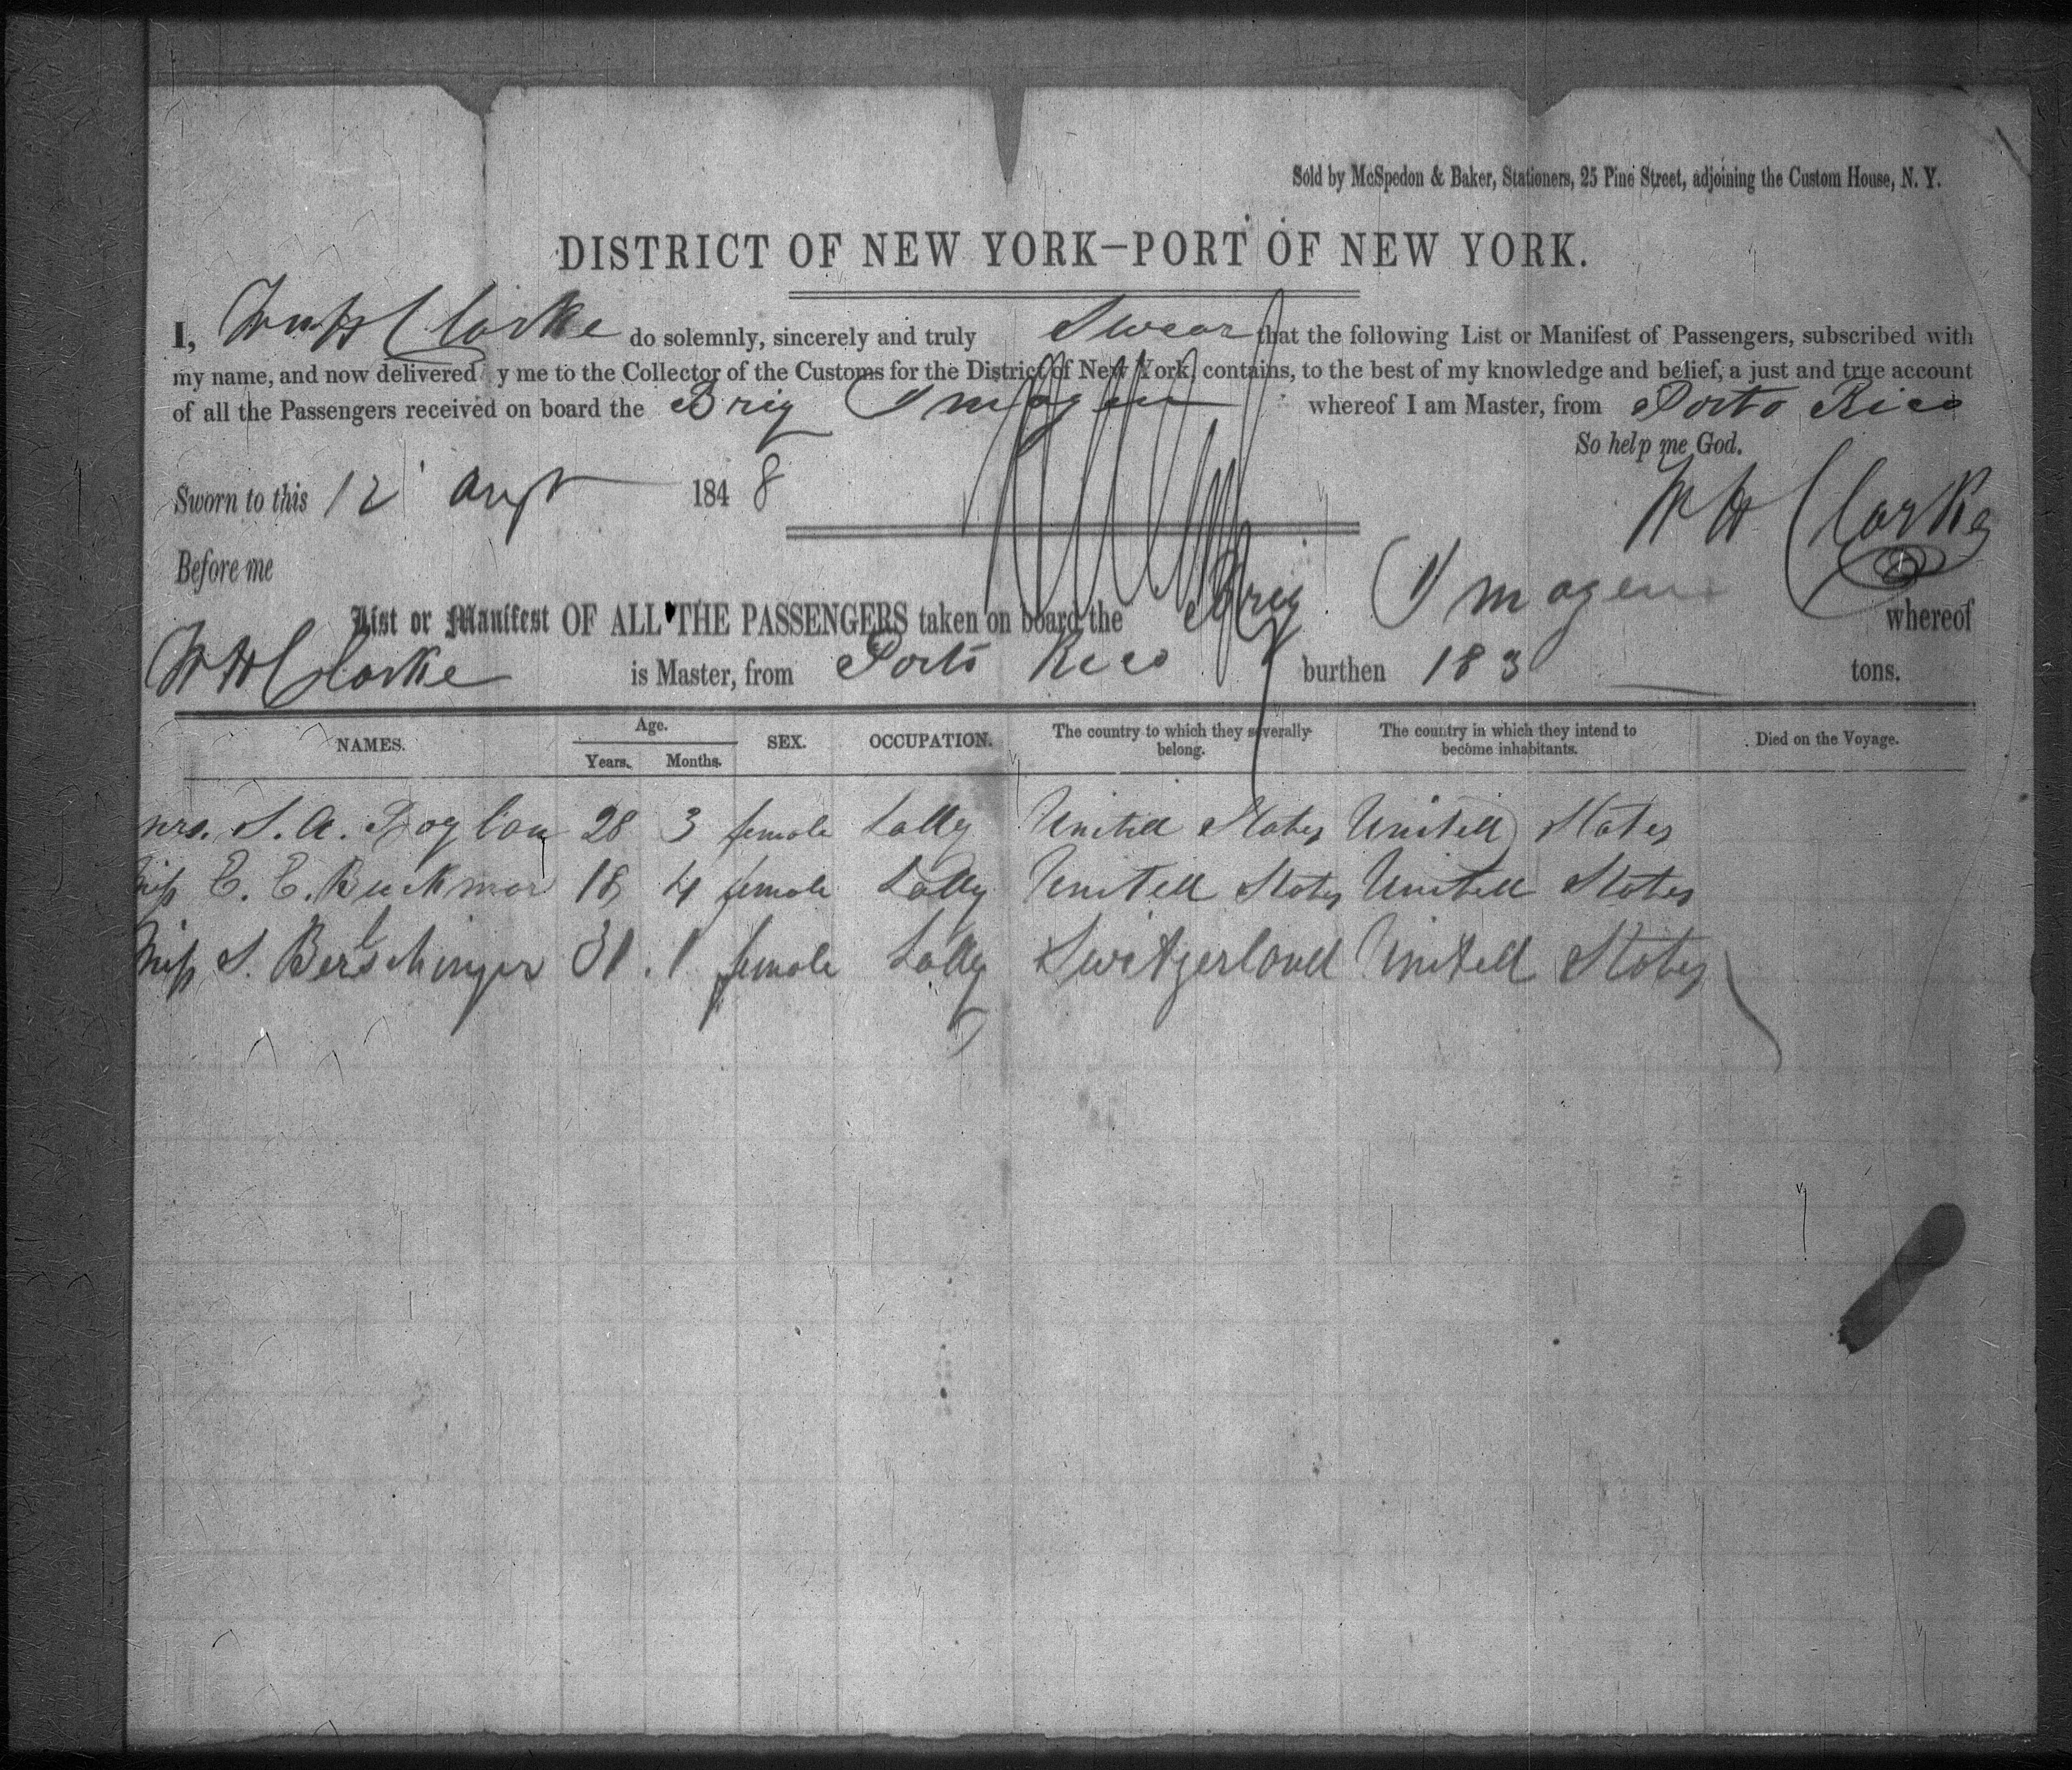 Sold by McSpedon & Baker, Stationers, 25 Pine Street, adjoining the Custom House, N. Y.
DISTRICT OF NEW YORK—PORT OF NEW YORK.
I, Wm H Clarke do solemnly, sincerely and truly Swear that the following List or Manifest of Passengers, subscribed with
my name, and now delivered y me to the Collector of the Customs for the District of New York, contains, to the best of my knowledge and belief, a just and true account
of all the Passengers received on board the Brig Imogene whereof I am Master, from Porto Rico
So help me God.
Sworn to this 12 Augt 1848
W H Clarke
Before me
List or Manifest OF ALL THE PASSENGERS taken on board the Brig Imogene whereof
W H Clarke is Master, from Porto Rico burthen 183 tons.
NAMES. Age. Years. Months. SEX. OCCUPATION. The country to which they severally belong. The country in which they intend to become inhabitants. Died on the Voyage.
Mrs. S. A. 28 3 female Lady United States United States
Miss E. E. Buckmar 18 4 female Lady United States United States
Miss S. Berschinger 31 1 female Lady Switzerland United States